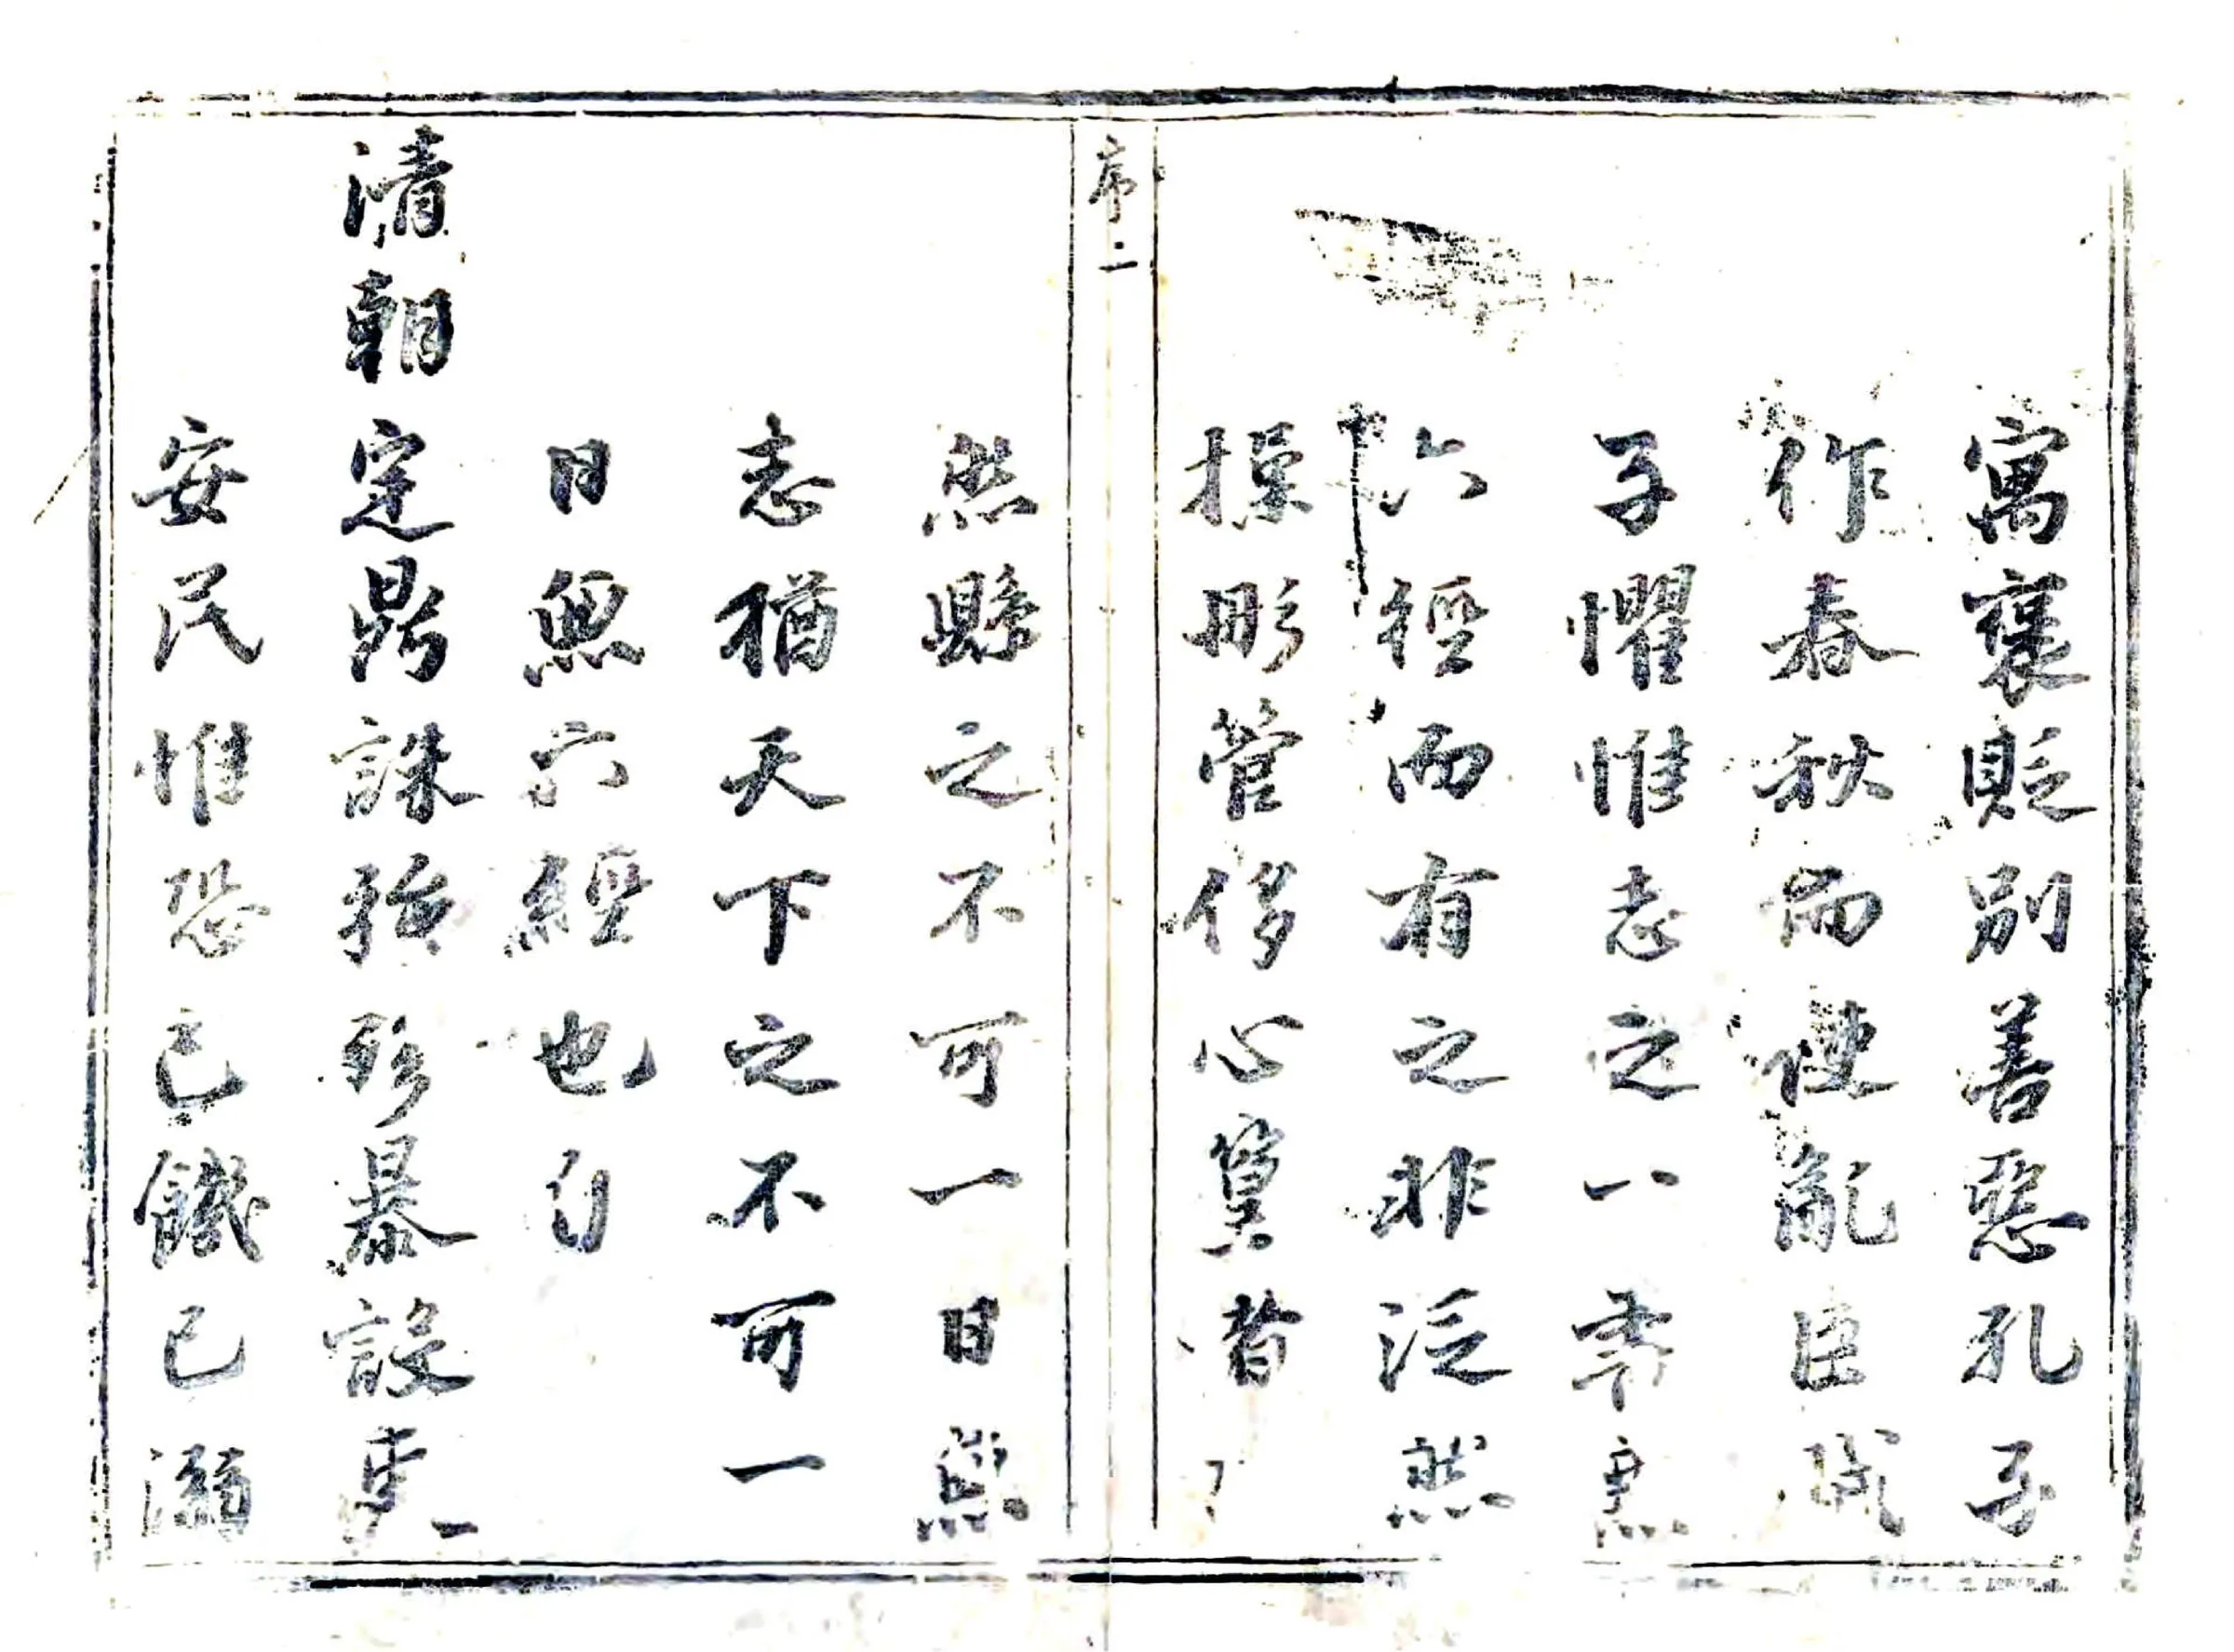 寓褒貶別善惡孔子
作春秋而使亂臣賊
子懼惟志之一字熏
六經而有之非泛然
操彤管侈心篡者
序二
然縣之不可一日無
志猶天下之不可一
日無六經也自
清朝定鼎誅殘殄暴設吏
安民惟恐己饑己溺